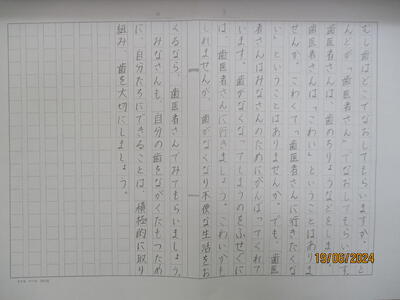 むし歯はどこでなおしてもらいますか。ほと
んどが「歯医者さん」でなおしてもらいます。
歯医者さんは、歯のちりょうなどをします。
歯医者さんは「こわい」ということはありま
せんか。こわくて歯医者さんに行きたくな
い」ということはありませんか。でも、歯医
者さんはみなさんのためにがんばってくれて
います。歯がなくなってしまうのをふせぐに
は、歯医者さんに行きましょう。こわいかも
しれませんが、歯がなくなり不便な生活をお
くるなら、歯医者さんでみてもらいましょう。
みなさんも、自分の歯をながくたもつため
に、自分たちにできることは、積極的に取り
組み、歯を大切にしましょう。
19/06/2024